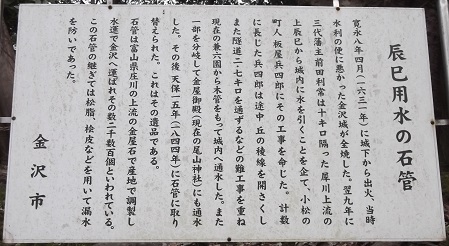 辰巳用水の石管
寛永八年四月(一六三一年)に城下から出火、当時
水利の便に悪かった金沢城が全焼した。翌九年に
三代藩主前田利常は十キロ隔った犀川上流の
上辰巳から城内に水を引くことを企て、小松の
町人板屋兵四郎にその工事を命じた。計数
に長じた兵四郎は途中 丘の稜線を開さくし
また隧道二・七キロを通ずるなどの難工事を重ね
現在の兼六園から木管をもって城内へ通水した。また
一部を分岐して金屋御殿(現在の尾山神社)にも通水
した。その後 天保一五年(一八四四年)に石管に取り
替えられた。これはその遺品である。
石管は富山県庄川の上流の金屋石で産地で調製し
水運で金沢へ運ばれその数二千数百個といわれている。
この石管の継ぎては松脂、桧皮などを用いて漏水
を防いであった。
金沢市